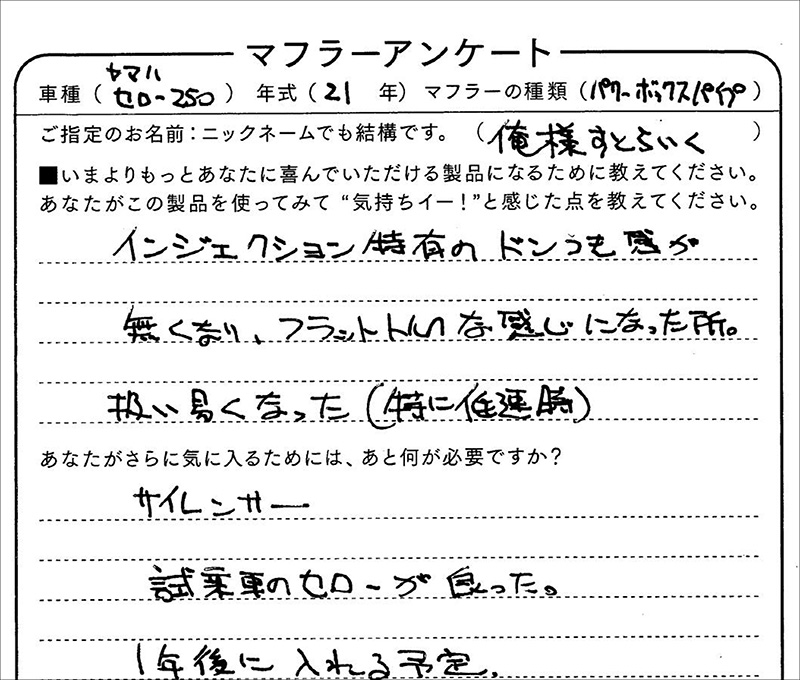 マフラーアンケート
ヤマハ
車種（セロー250） 年式（21 年）マフラーの種類（パワーボックスパイプ）
ご指定のお名前：ニックネームでも結構です。（俺様すとらいく）
■いまよりもっとあなたに喜んでいただける製品になるために教えてください。
あなたがこの製品を使ってみて“気持ちイー！”と感じた点を教えてください。
インジェクション特有のドンつき感が
無くなり、フラットトルクな感じになった所。
扱い易くなった（特に低速時）
あなたがさらに気に入るためには、あと何が必要ですか？
サイレンサー
試乗車のセローが良った。
1年後に入れる予定。